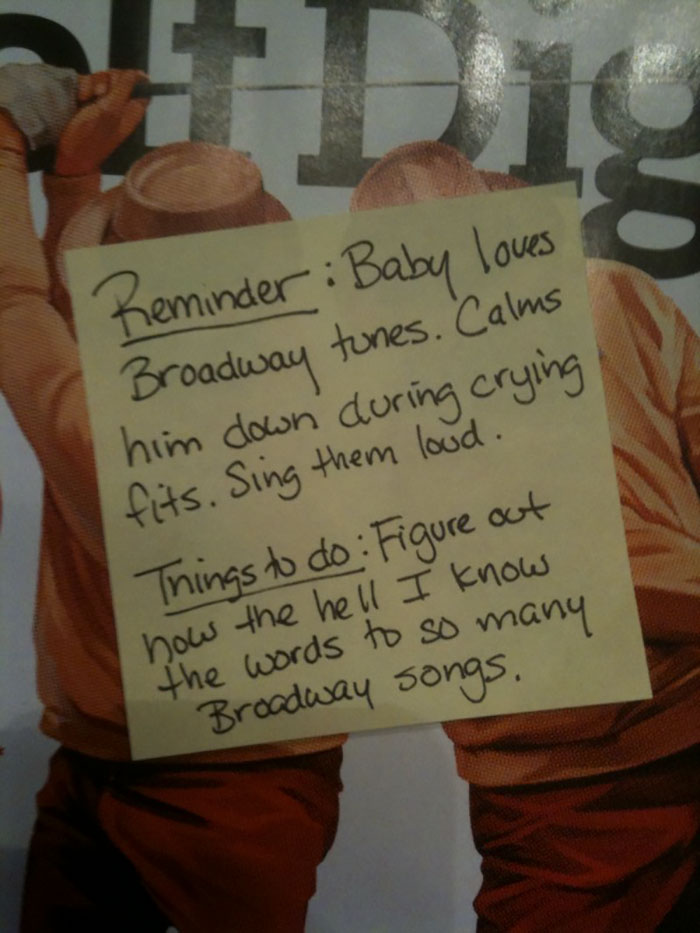 olf Dig
Reminder: Baby loves
Broadway tunes. Calms
him down during crying
fits. Sing them loud.
Things to do: Figure out
how the hell I know
the words to so many
Broadway songs.